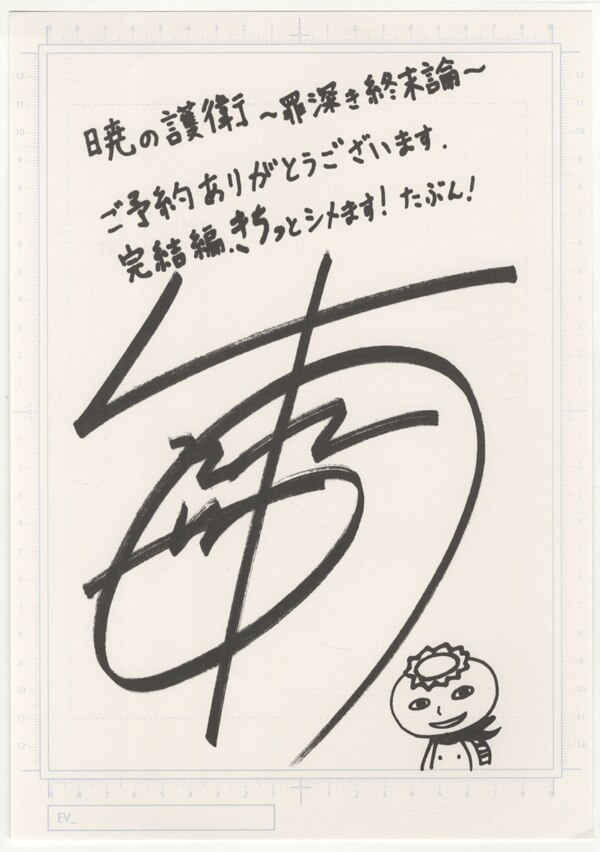 暁の護衛～罪深き終末論～
ご予約ありがとうございます.
完結編、きちっとシメます! たぶん!
EV_